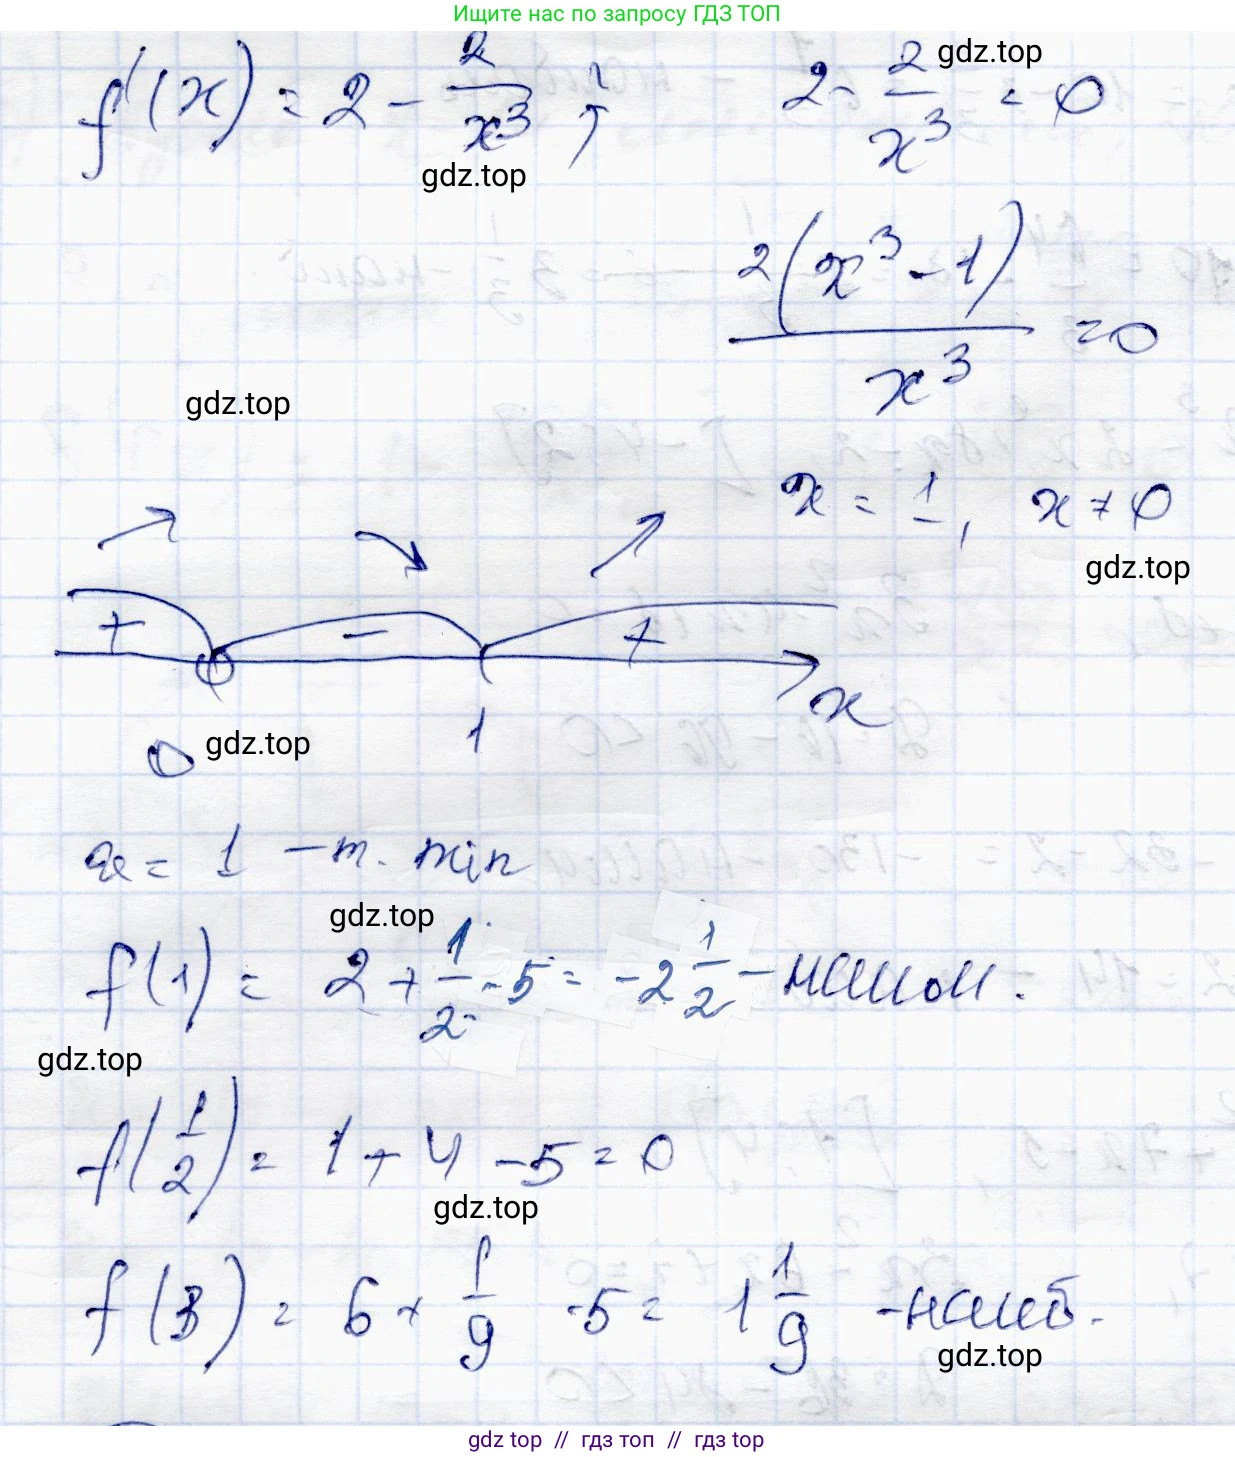 Ищите нас по запросу ГДЗ ТОП
f'(x) = 2 - 2/x³ ;
2 - 2/x³ = 0
gdz.top
gdz.top
2(x³ - 1)/x³ = 0
gdz.top
x = 1, x ≠ 0
gdz.top
+ - +
x
0 1
gdz.top
x = 1 - т. min
gdz.top
f(1) = 2 + 1/2 - 5 = -2 1/2 - наим.
gdz.top
f(1/2) = 1 + 4 - 5 = 0
gdz.top
f(3) = 6 + 1/9 - 5 = 1 1/9 - наиб.
gdz.top
gdz top // гдз топ // гдз top